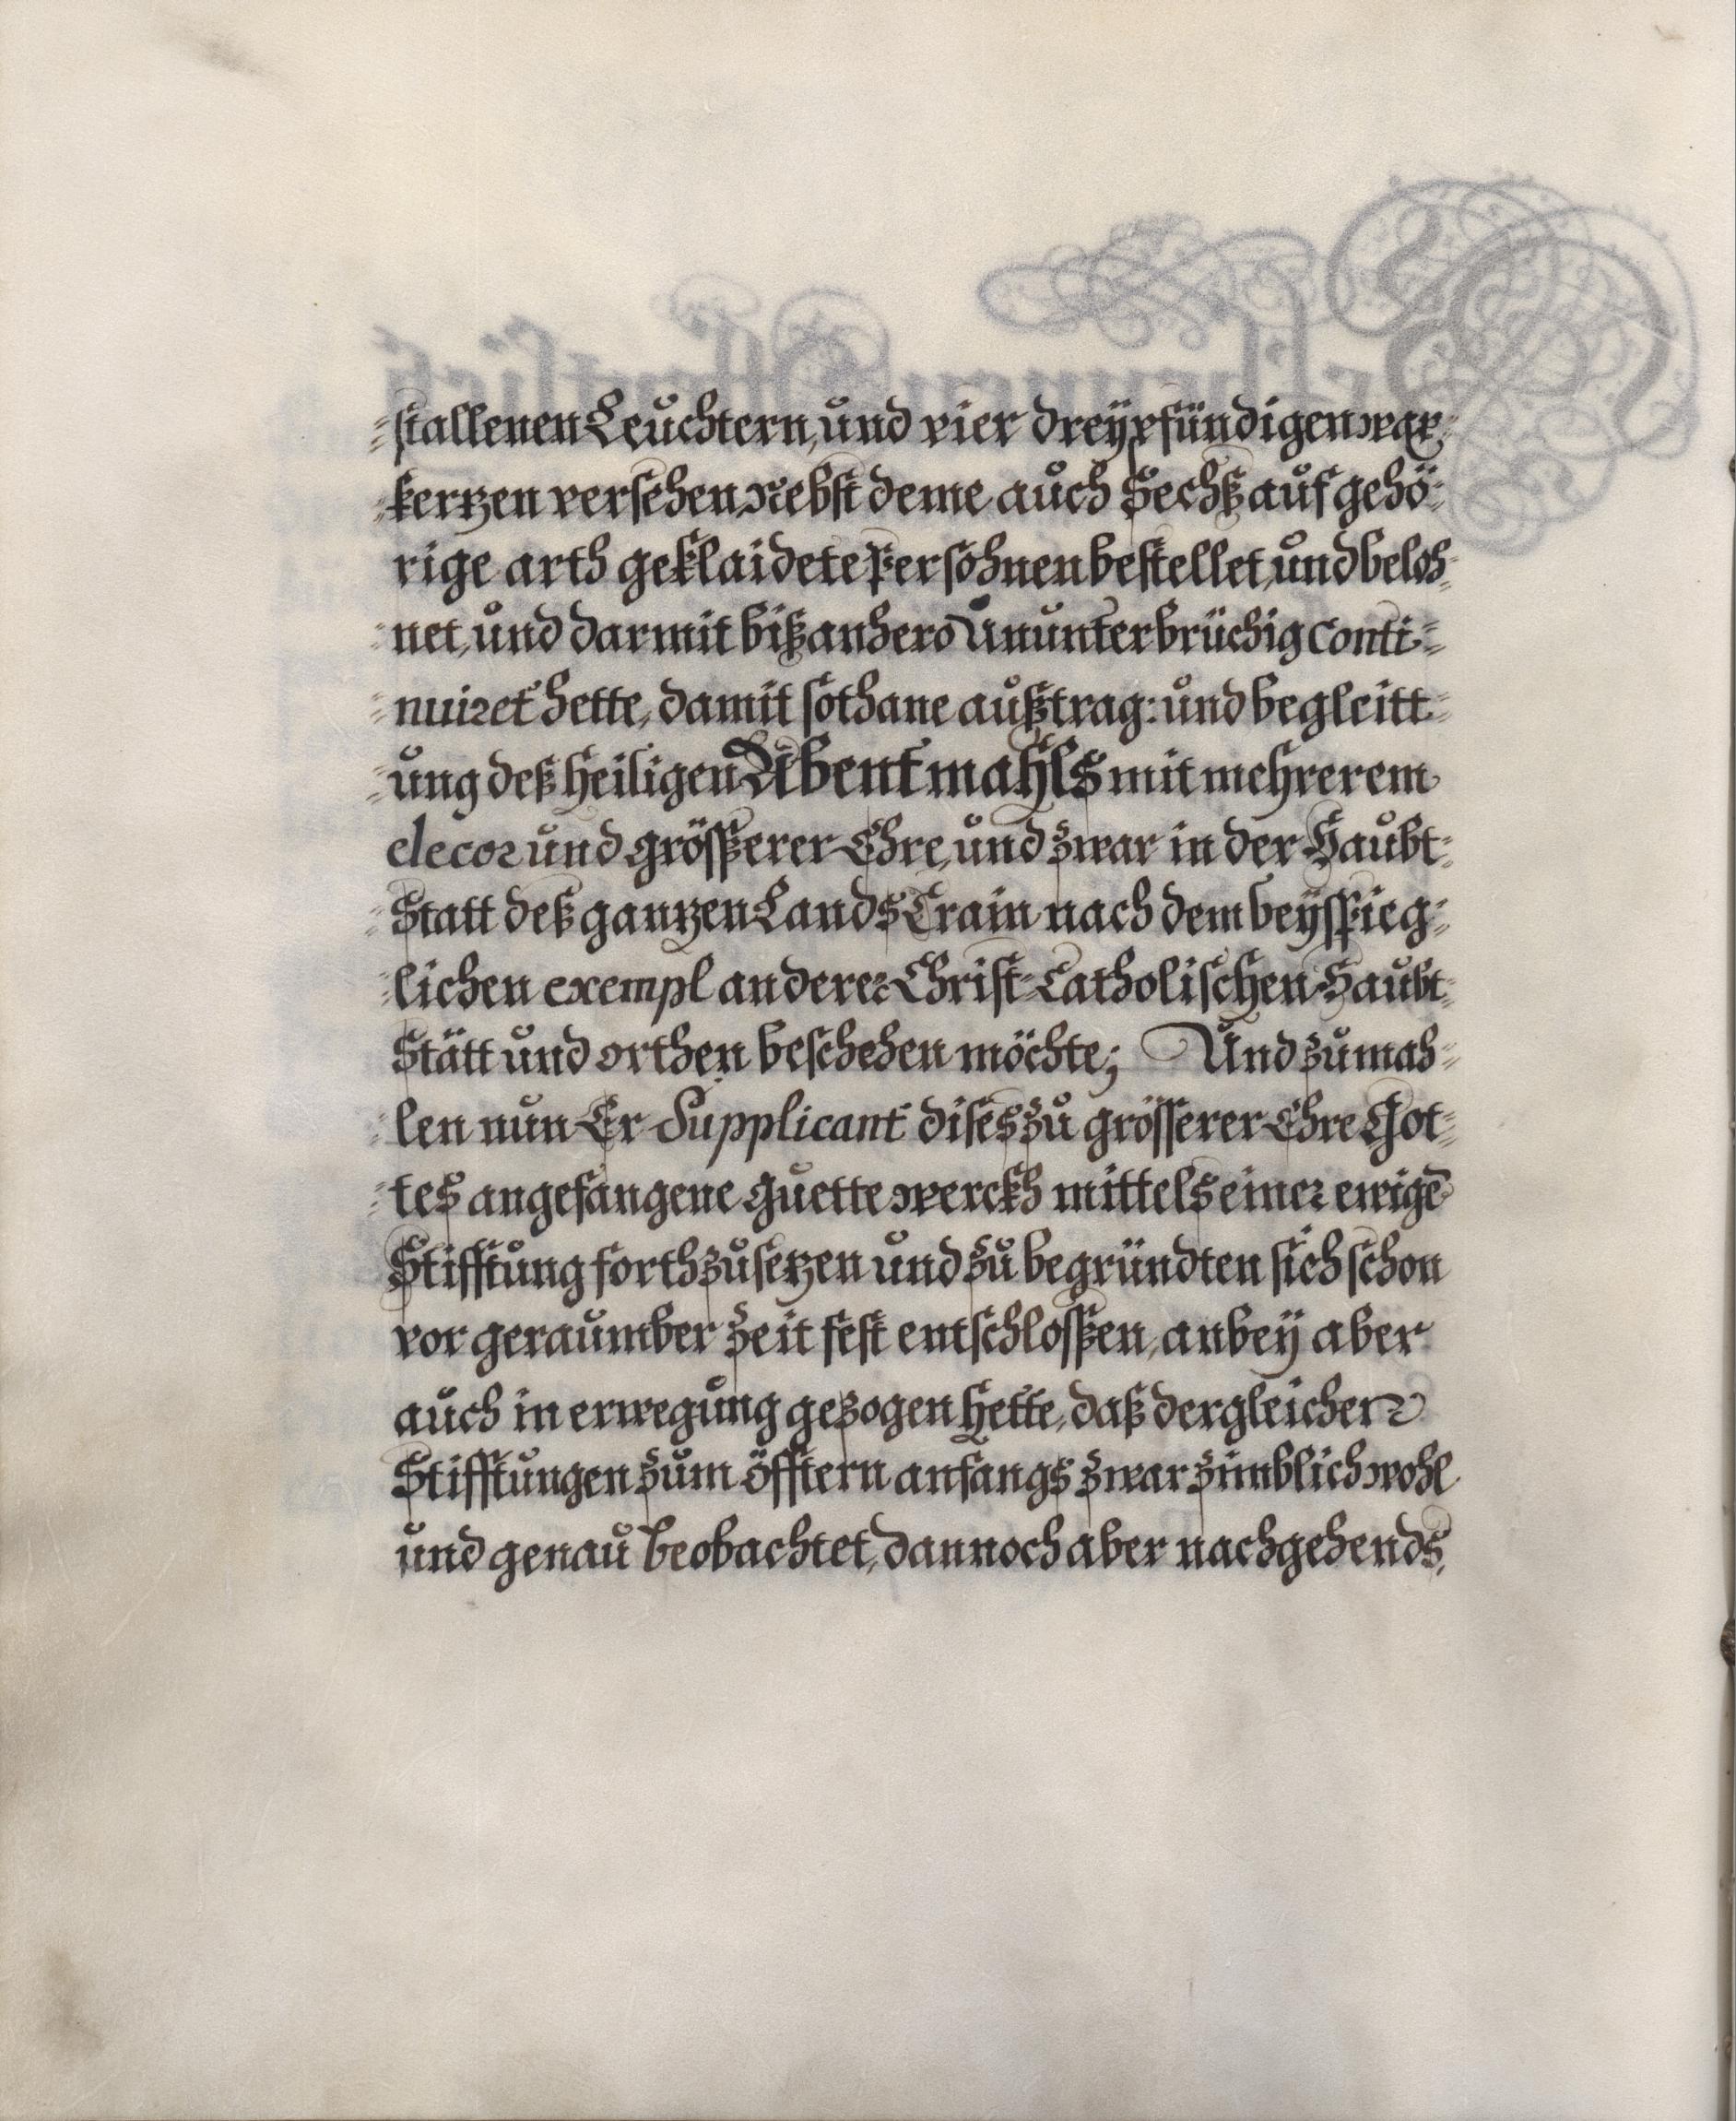 stallenen Leuchtern, und vier dreypfündigen wax-
kertzen versehen, Nebst deme auch Sechß auf gehö-
rige arth geklaidete Persohnen bestellet, und beloh-
net, und darmit biß anhero Ununterbrüchig conti-
nuiret hette, damit sothane außtrag: und begleitt-
ung deß heiligen Abentmahls mit mehrerem
decor und grösserer Ehre, und zwar in der Haubt-
Statt deß gantzen Lands Crain nach dem beyspieg-
lichen exempl anderer Christ-Catholischen Haubt-
Stätt und orthen beschehen möchte; Und zumah-
len nun Er Supplicant dises zu grösserer Ehre Got-
tes angefangene guette werckh mittels einer ewigē
Stifftung forthzusetzen und zu begründten sich schon
vor geraumber Zeit fest entschlossen, anbey aber
auch in erwegung gezogen hette, daß dergleichen
Stifftungen zum öfftern anfangs zwar zimblich wohl
und genau beobachtet, dannoch aber nachgehends,